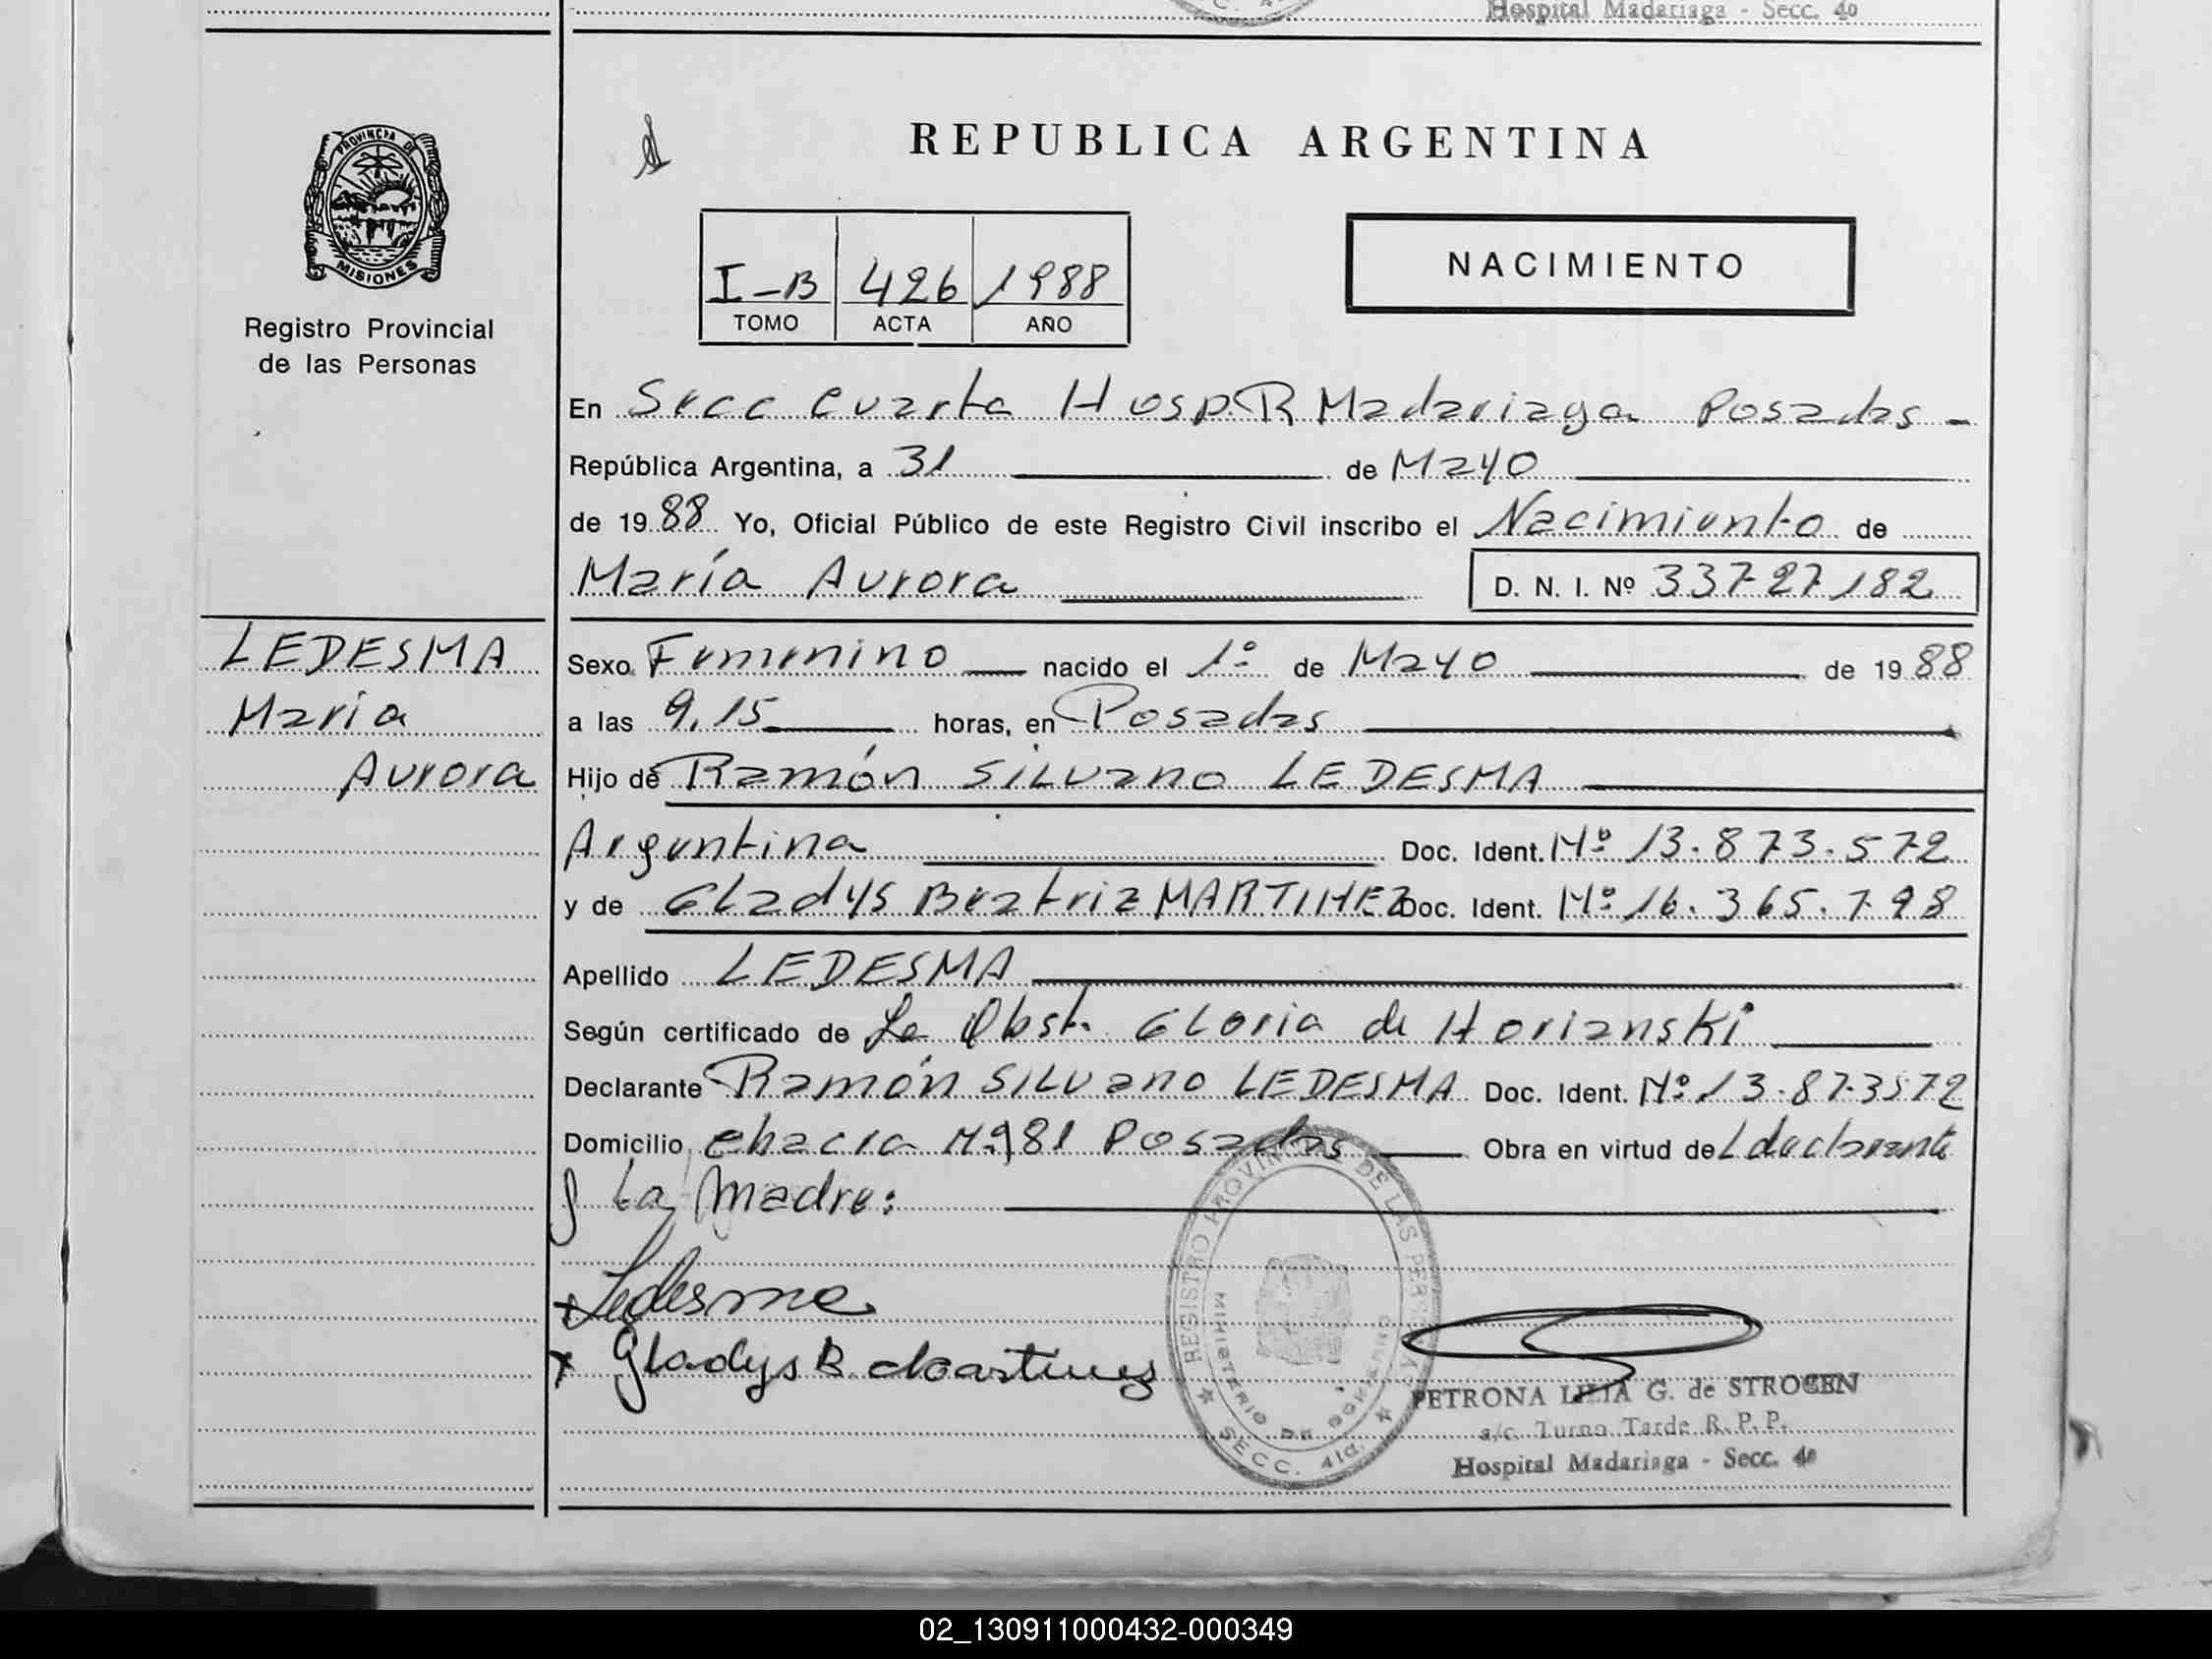 Hospital Madariaga - Secc. 4a
PROVINCIA DE
MISIONES
Registro Provincial
de las Personas
REPUBLICA ARGENTINA
I-B 426 1988
TOMO ACTA AÑO
NACIMIENTO
En Secc Cuarta Hosp. R Madariaga Posadas -
República Argentina, a 31 de Mayo
de 1988 Yo, Oficial Público de este Registro Civil inscribo el Nacimiento de
María Aurora D. N. I. Nº 33727182
LEDESMA
Maria
Aurora
Sexo Femenino nacido el 1º de Mayo de 1988
a las 9,15 horas, en Posadas
Hijo de Ramón SILVano LEDESMA
Argentina Doc. Ident. Nº 13.873.572
y de Gladys Beatriz MARTINEZ Doc. Ident. Nº 16.365.798
Apellido LEDESMA
Según certificado de La Obst. Gloria de Horianski
Declarante Ramón SILVano LEDESMA Doc. Ident. Nº 13.873572
Domicilio Chacra Nº 81 Posadas Obra en virtud del declarante
y La Madre:
Ledesma
Gladys B. Martinez
REGISTRO PROVINCIAL DE LAS PERSONAS
MINISTERIO DE GOBIERNO
SECC. 4ta.
PETRONA LILIA G. de STROCEN
a/c. Turno Tarde R. P. P.
Hospital Madariaga - Secc. 4a
02_130911000432-000349